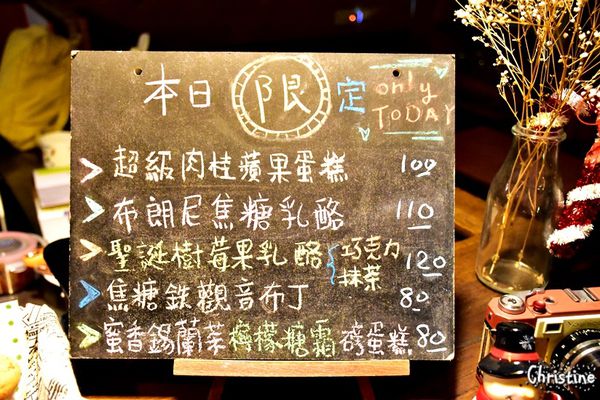 本日限定 only
TODAY
超級肉桂蘋果蛋糕 100
布朗尼焦糖乳酪 110
聖誕樹莓果乳酪 巧克力 抹茶 120
焦糖鉄觀音布丁 80
蜜香錫蘭茶檸檬糖霜磅蛋糕 80
Christine